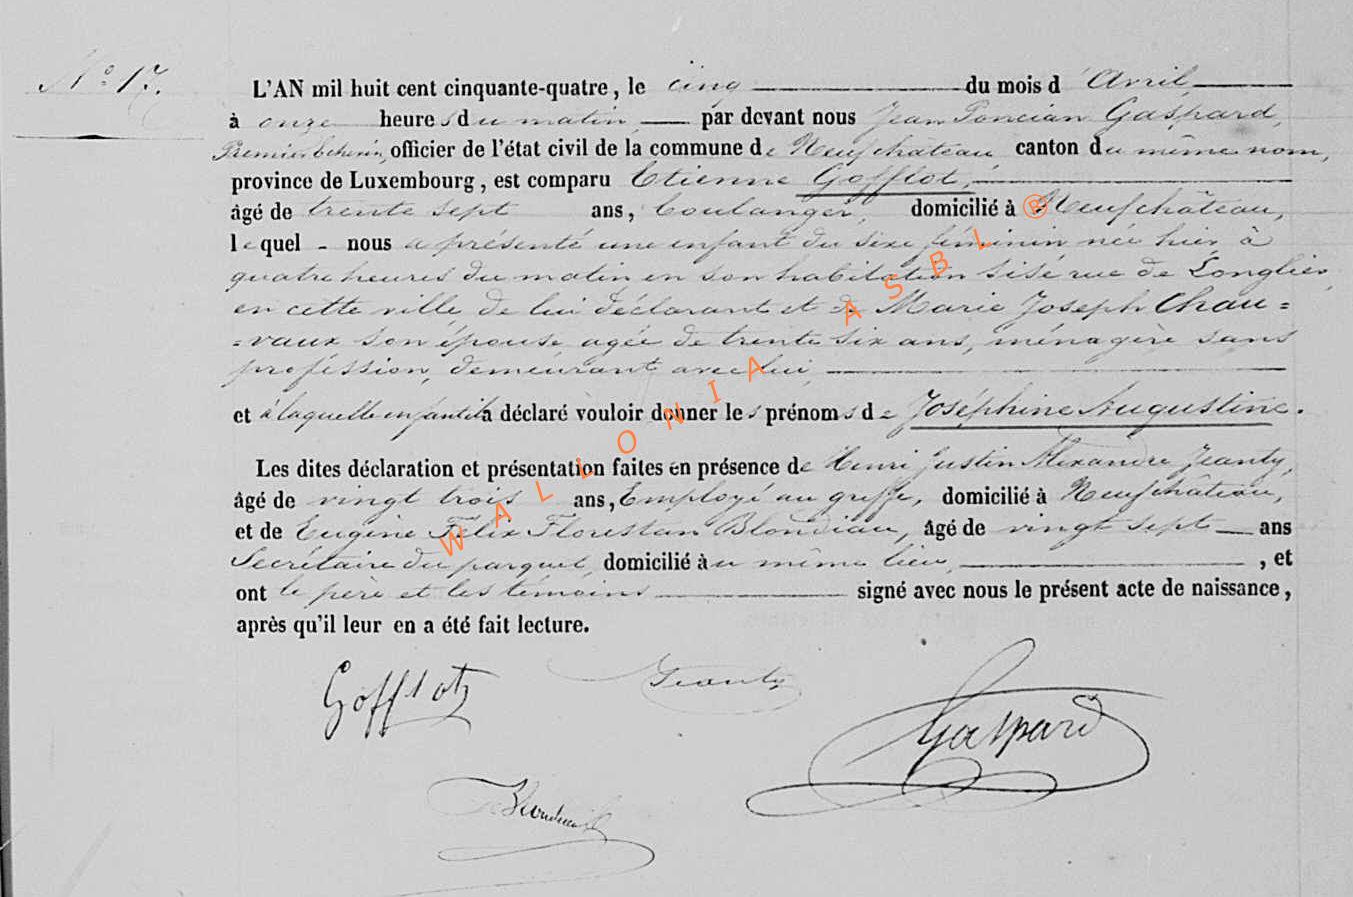 N° 17.
L'AN mil huit cent cinquante-quatre, le cinq du mois d'Avril
à onze heures du matin, par devant nous Jean Poncian Gaspard,
Premier Echevin, officier de l'état civil de la commune de Neufchâteau, canton du même nom,
province de Luxembourg, est comparu Etienne Gofflot,
âgé de trente sept ans, boulanger, domicilié à Neufchâteau,
lequel - nous a présenté une enfant du sexe féminin née hier à
quatre heures du matin en son habitation sise rue de Longlier,
en cette ville de lui déclarant et de Marie Joseph Chau=
=vaux son épouse agée de trente six ans, ménagère sans
profession, demeurant avec lui,
et à laquelle enfant il a déclaré vouloir donner les prénoms de Joséphine Augustine.
Les dites déclaration et présentation faites en présence de Henri Justin Alexandre Jeanty,
âgé de vingt trois ans, Employé au greffe, domicilié à Neufchâteau,
et de Eugène Félix Florestan Blondiau, âgé de vingt sept ans
Secrétaire du parquet, domicilié au même lieu, , et
ont le père et les témoins signé avec nous le présent acte de naissance,
après qu'il leur en a été fait lecture.
Gofflot Jeanty
Gaspard
Blondiau
WALLONIA ASBL ®